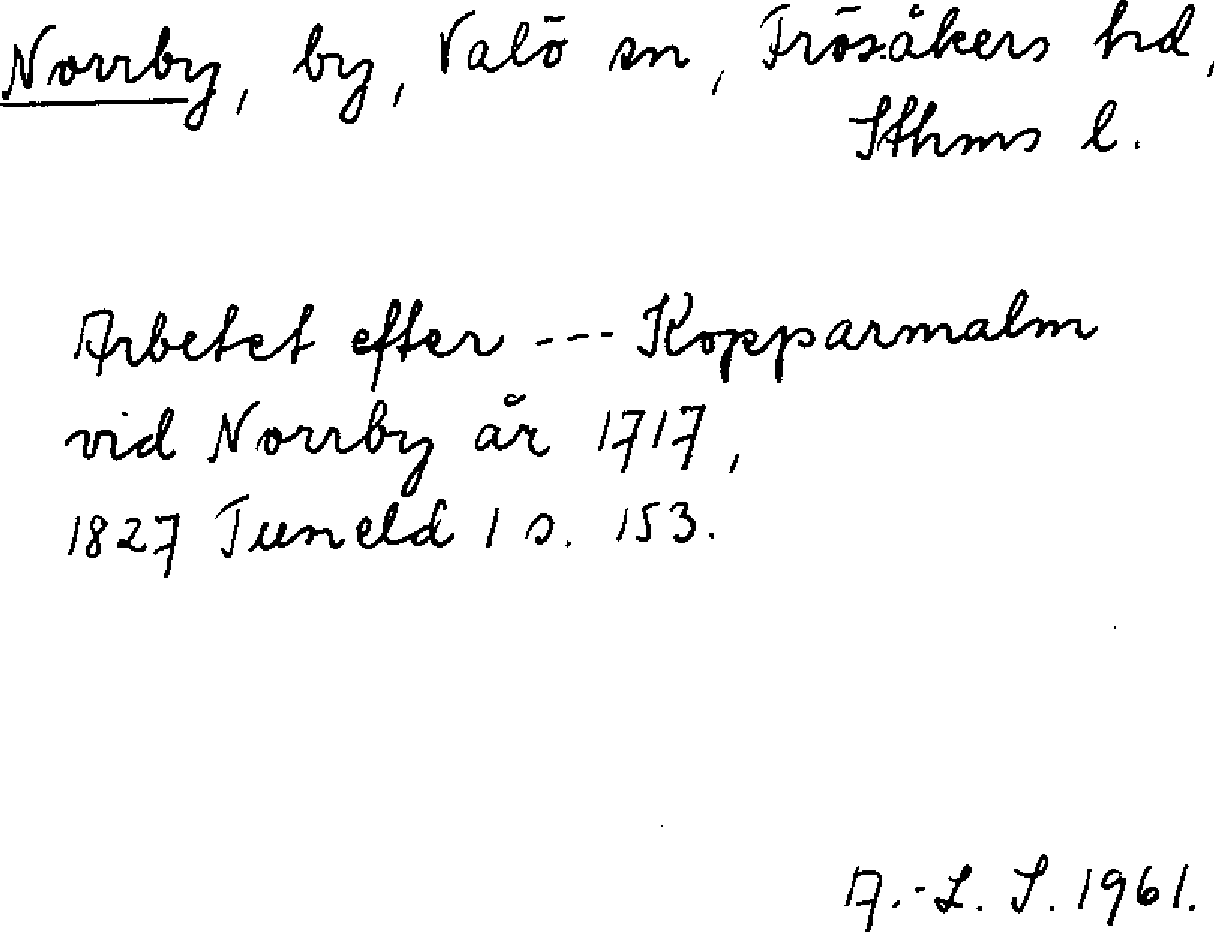 Norrby, by, Valö sn, Frösåkers hd,
Sthms l.
Arbetet efter --- Kopparmalm
vid Norrby år 1717,
1827 Tuneld 1 s. 153.
A.-L. S. 1961.